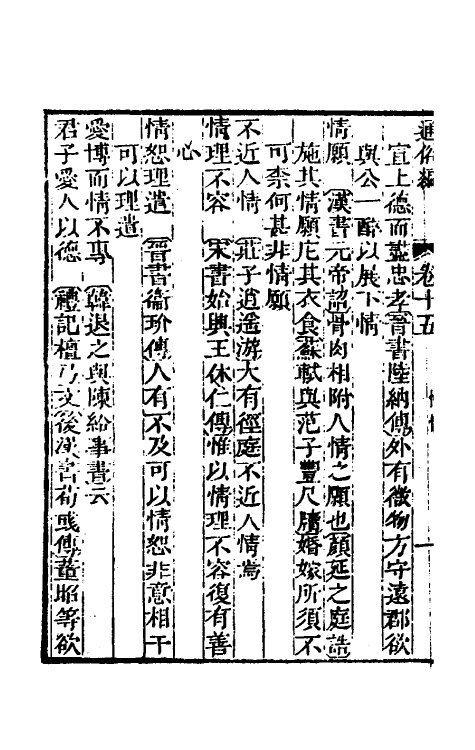 通俗編 卷十五
宣上德而盡忠孝晉書陸納傳外有微物方守遠郡欲
與公一醉以展下情
情願 漢書元帝詔骨肉相附人情之願也顏延之庭誥
施其情願庀其衣食蘇軾與范子豐尺牘婚嫁所須不
可柰何甚非情願
不近人情 莊子逍遙游大有徑庭不近人情焉
情理不容 宋書始興王休仁傳惟以情理不容復有善
心
情恕理遣 晉書衞玠傳人有不及可以情恕非意相干
可以理遣
愛博而情不專 韓退之與陳給事書云
君子愛人以德 禮記檀弓文後漢書荀彧傳董昭等欲